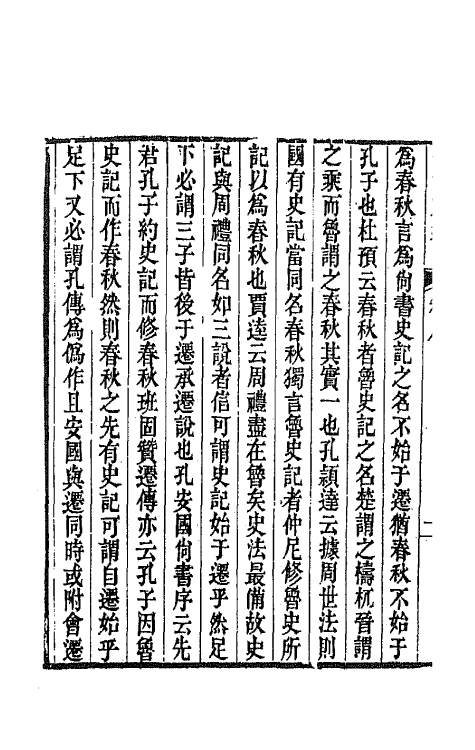 為春秋言為尙書史記之名不始于遷猶春秋不始于
孔子也杜預云春秋者魯史記之名楚謂之檮杌晉謂
之乘而魯謂之春秋其實一也孔頴達云據周世法則
國有史記當同名春秋獨言魯史記者仲尼修魯史所
記以為春秋也賈逵云周禮盡在魯矣史法最備故史
記與周禮同名如三說者信可謂史記始于遷乎然足
下必謂三子皆後于遷承遷說也孔安國尙書序云先
君孔子約史記而修春秋班固贊遷傳亦云孔子因魯
史記而作春秋然則春秋之先有史記可謂自遷始乎
足下又必謂孔傳為僞作且安國與遷同時或附會遷
二